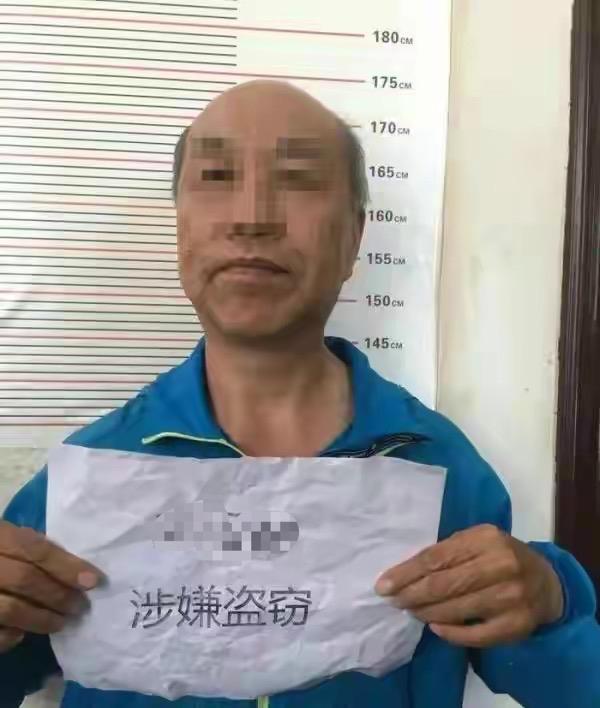 180CM
175CM
170CM
165CM
160CM
155CM
150CM
145CM
涉嫌盗窃